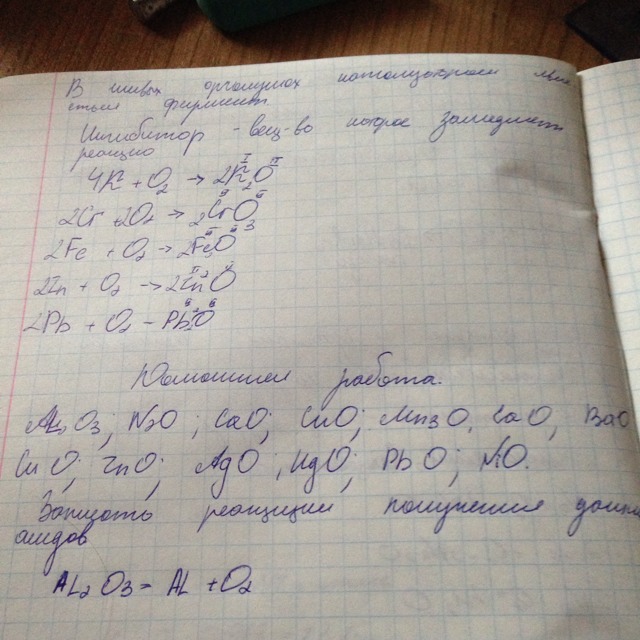 В живых организмах катализатором явл
яется фермент
Ингибитор - вещ-во которое замедляет
реакцию
4K + O2 → 2K2O
2Cr + 2O2 → 2CrO3
2Fe + O2 → 2FeO
2Zn + O2 → 2ZnO
2Pb + O2 - PbO
Домашняя работа.
AL2O3; N2O; CaO; CuO; Mn3O, CaO, BaO
CuO; ZnO; AgO; HgO; PbO; NO.
Записать реакции получения данны
оксидов
AL2O3 = AL + O2